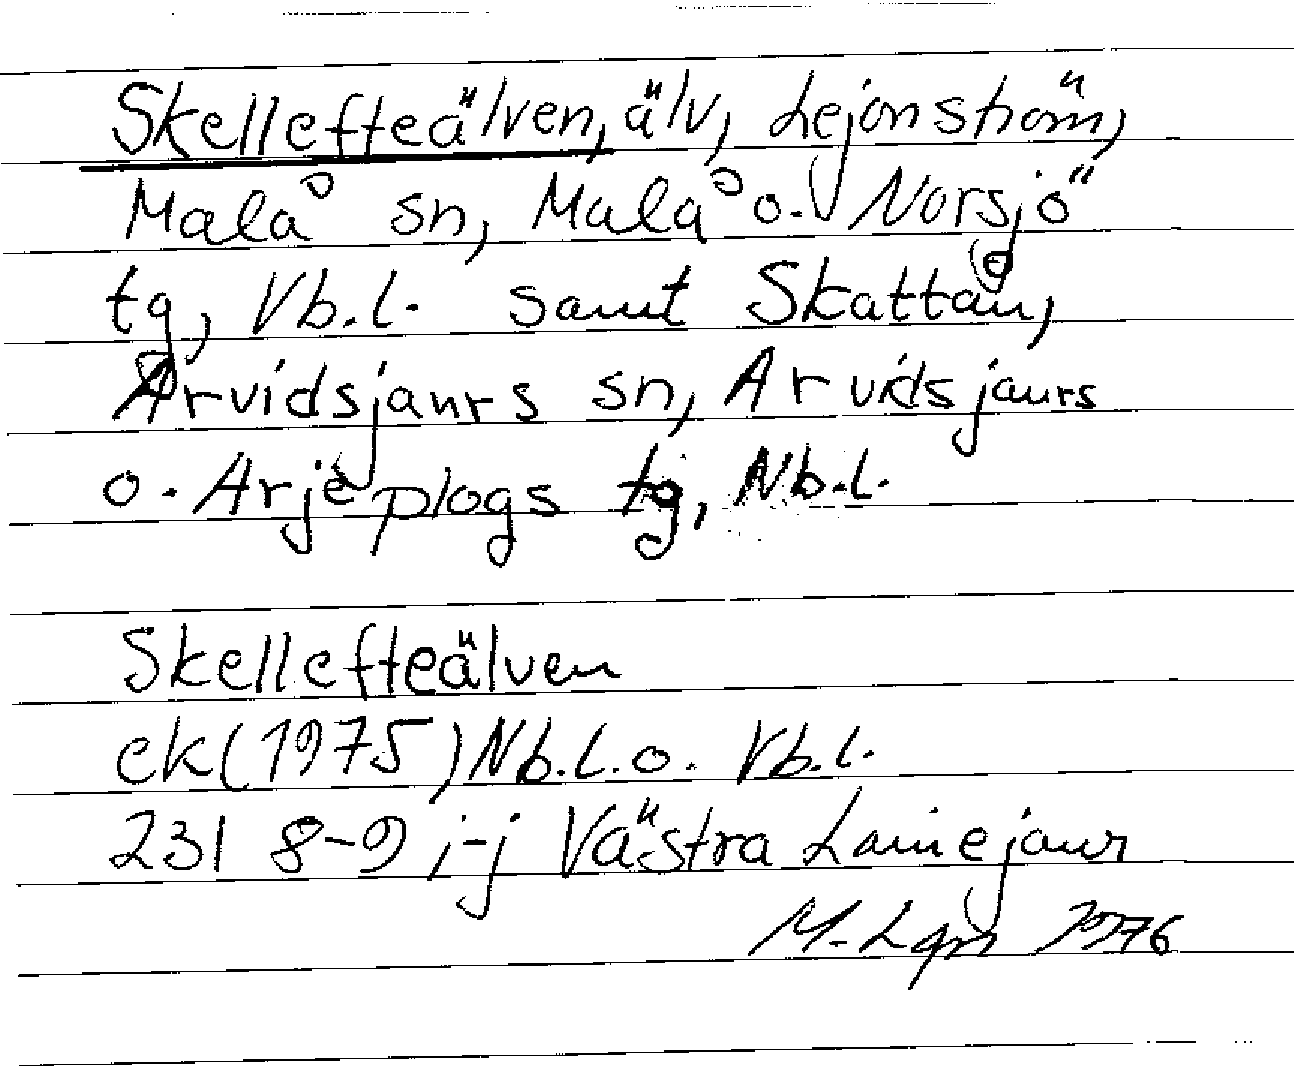 Skellefteälven, älv, Lejonström,
Malå sn, Malå o. Norsjö
tg, Vb.l. samt Skattån,
Arvidsjaurs sn, Arvidsjaurs
o. Arjeplogs tg, Nb.l.
Skellefteälven
ek (1975) Nb.l. o. Vb.l.
231 8-9 i-j Västra Lainejaur
M. 1976